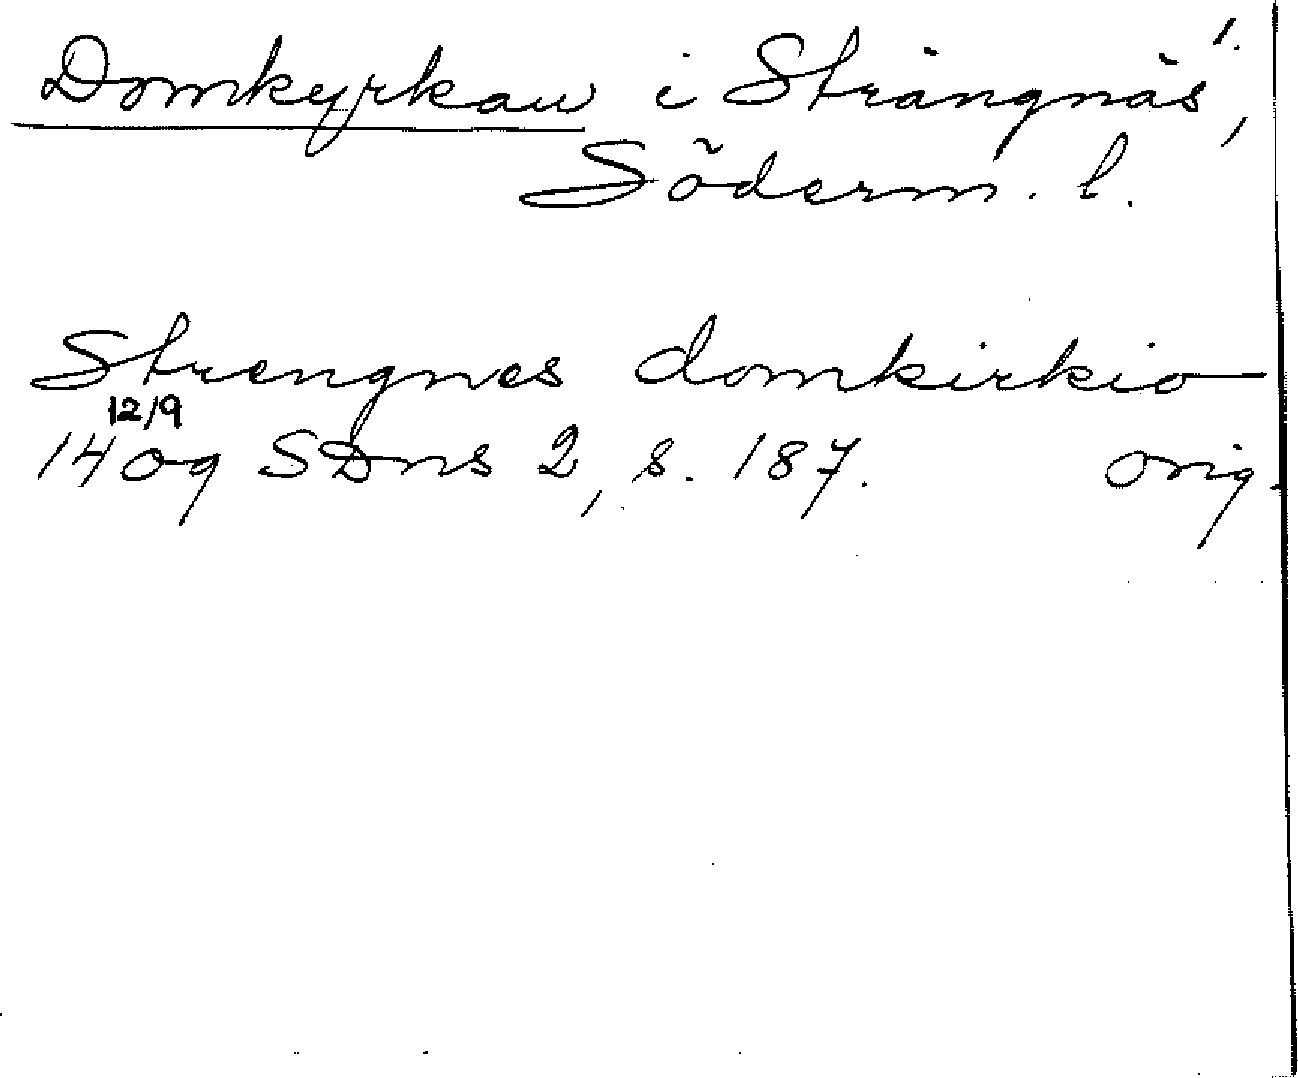 1.
Domkyrkan i Strängnäs,
Söderm. l.
Strengnes domkirkio
12/9
1409 SDns 2, s. 187. orig.